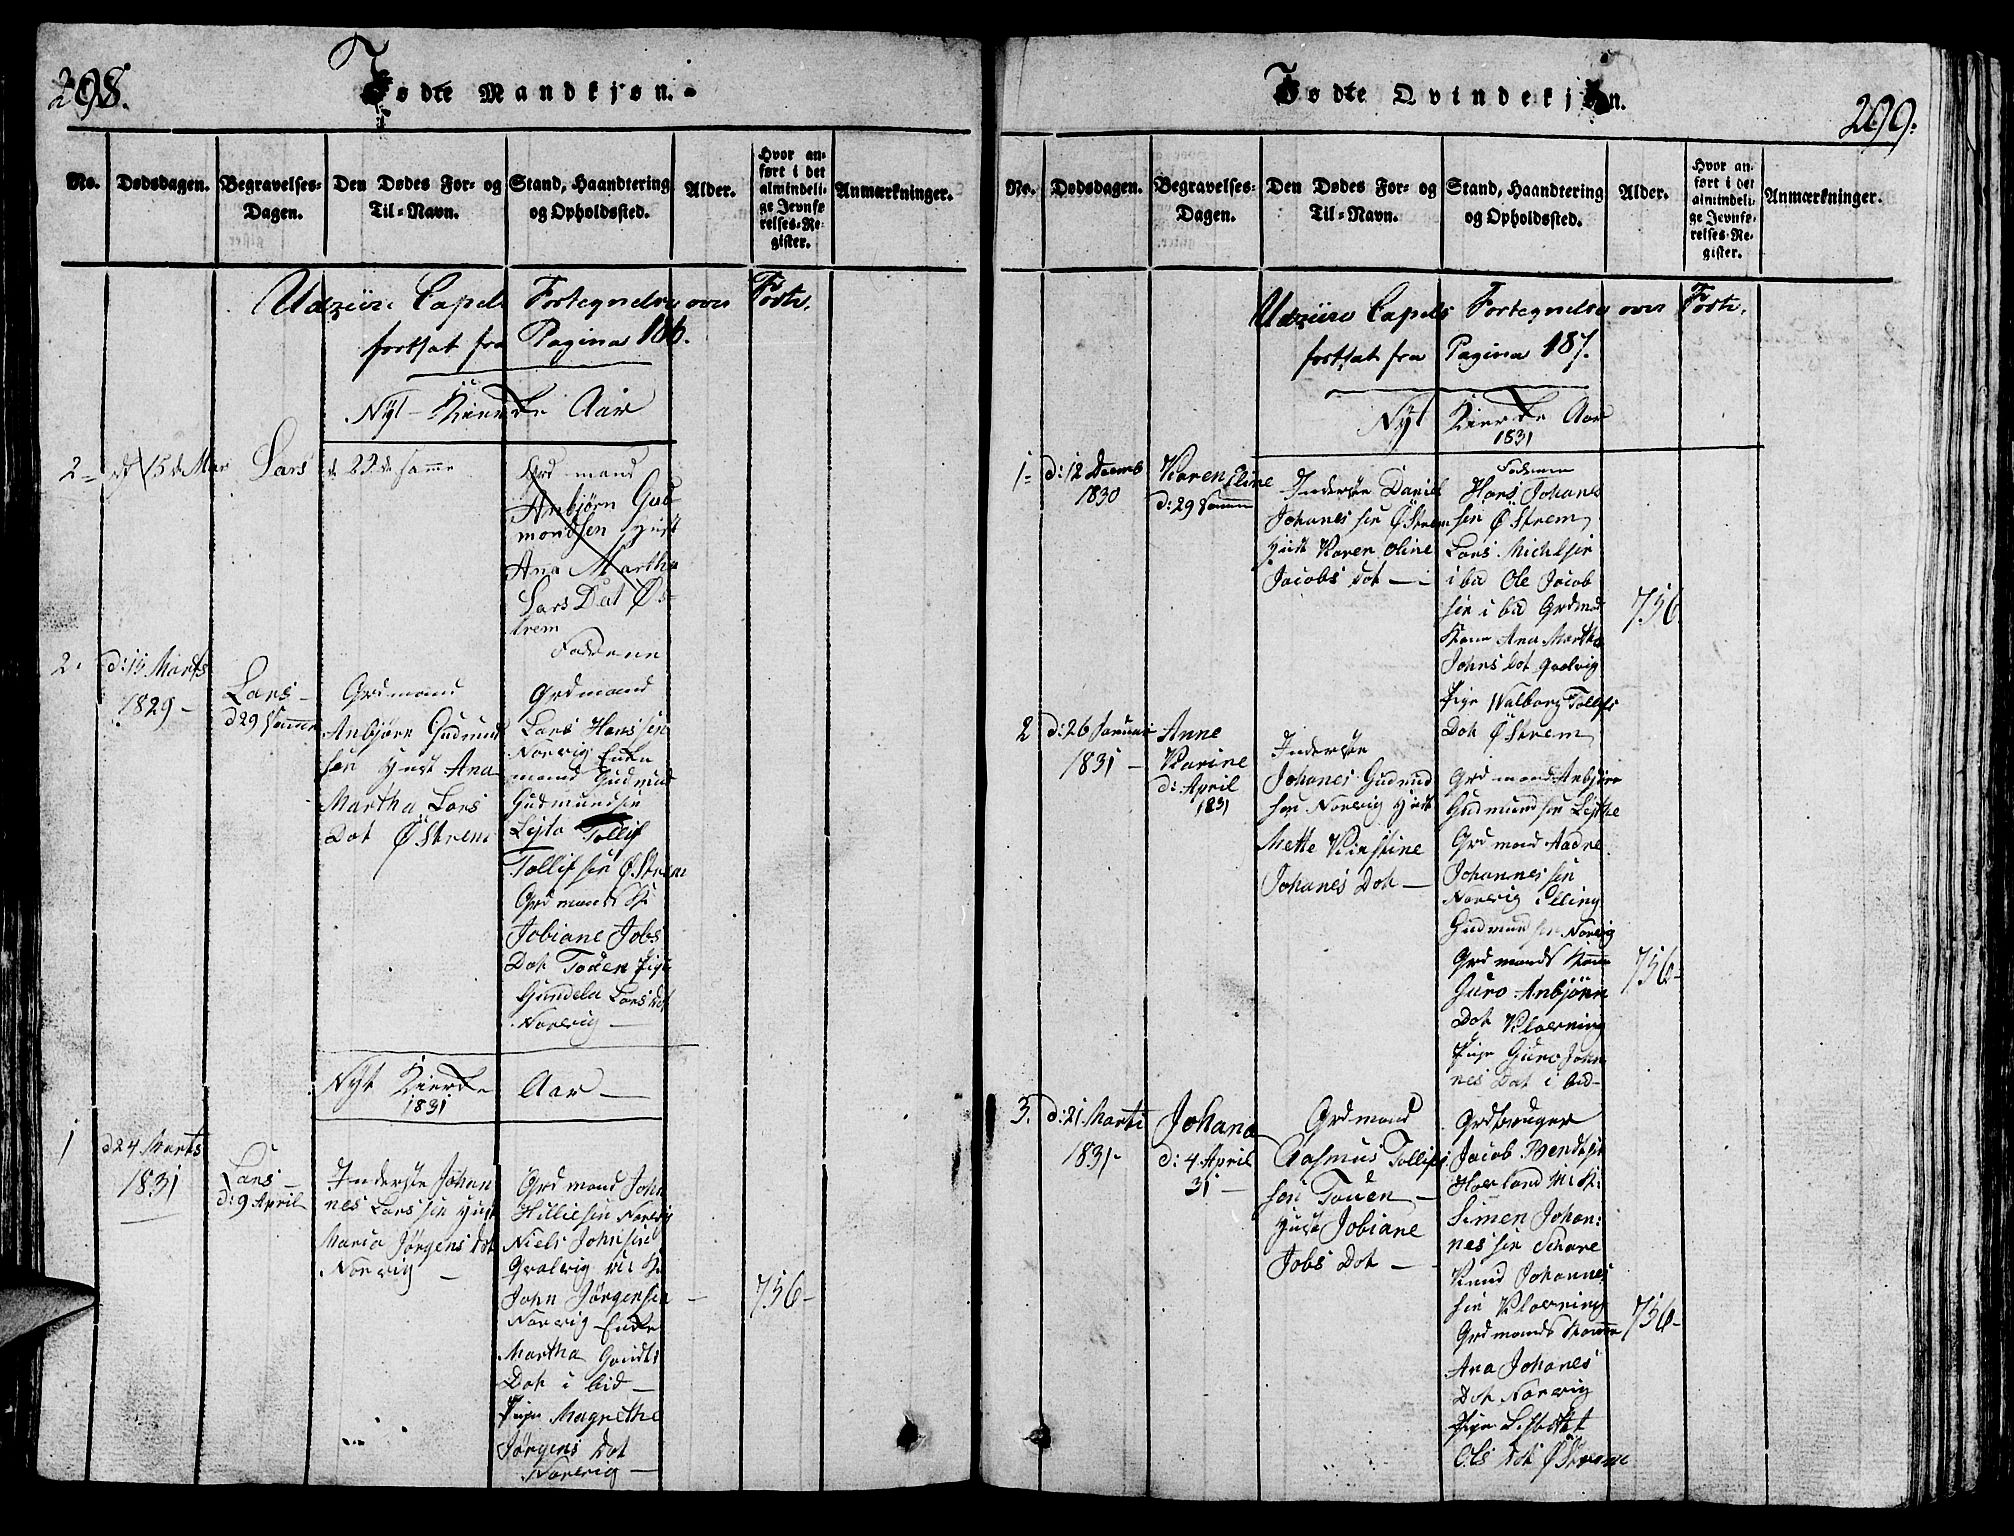 298.
Fødte Mandkjøn.
No.
Dødsdagen.
Begravelses-
Dagen.
Den Dødes For- og
Til-Navn.
Stand, Haandtering
og Opholdssted.
Alder.
Hvor an-
ført i det
almindeli-
ge Jevnfø
relses-Re-
gister.
Anmærkninger.
Udzüire Capels Fortegnelse over Födte.
fortsat fra Pagina 186.
Nÿt Kierke Aar
2 15 de Mar Lars d. 22 de samme
Grd mand
Anbjørn Gud
mondsen
Ana Martha
Lars Dat Øs-
trem
Fadderne
2.
d: 15 Marts
1829 -
Lars -
d 29 Samme
Grdmand
Anbjørn Gudmund
sen Hust Ana
Martha Lars
Dot ØStrem
Grdmand
Lars Hans sen
Norvig Enke
mand Gudmund
Gudmundsen
Tollif
Tollif sen ØStrem
Grd mands K:
Jobiane Jobs
Dot Touen Pige
Gundela Lars dot
Norvig -
Nÿt Kierke Aar -
1831
1
d 24 Marts
1831
Lars -
d: 9 April
Inderste Johan
nes Lars sen Hust
Maria Jørgens dot
Norvig -
Grd mand John
Hillie sen Norvig
Niels John sen
Qvalvig
John Jørgensen
Norvig Enke
Martha
Dot i bid -
Pige Magrethe
Jørgens dot
Norvig -
756 -
299.
Fødte Qvindekjøn.
No.
Dødsdagen.
Begravelses-
Dagen.
Den Dødes For- og
Til-Navn.
Stand, Haandtering
og Opholdssted.
Alder.
Hvor an-
ført i det
almindeli-
ge Jevnfø-
relses-Re-
gister.
Anmærkninger.
Udzüire Capels Fortegnelse over Födte.
fortsat fra Pagina 187.
Nÿt Kierke Aar
1831
1-
d: 12 Decemb
1830
Karen Eline
d: 29 Samme
Daniel
Johanes sen ØStrem
Hust Karen Oline
Jacobs Dot -
Hans Johanes
sen ØStrem
Lars Michelsen
i bid Ole Jacob
sen i bid Grdmds
Kone Ana Martha
Johns Dot Qvalvig
Pige Walborg Tollifs
Dot ØStrem
756
2
d: 26 Januari
1831 -
Anne
Karine
d: April
1831
Johanes Gudmund
sen Norvig Hust
Mette Kirstine
Johanes Dot -
Grd mand Anbjørn
Gudmund sen
Grd mand Aadne
Johannes sen
Norvig Elling
Gudmund sen Norvig
Grd mands Kone
Guro Anbjørn
Dot Kloerning
Pige Guro Johan
nes Dot i bid -
756 -
3.
d: 21 Marti
1831 -
Johana
d: 4 April
31 -
Grd mand
Rasmus Tollif
sen Touen -
Hust Jobiane
Jobs Dot -
Grdbruger
Jacob Bendt sen
Hovland
Simen Johan:
nes sen Schare
Knud Johannes
sen Kloerning
Grd mands Kone
Ana Johanes
Dot Norvig
Pige Lisbettet
Ols dot ØStrem
756 -